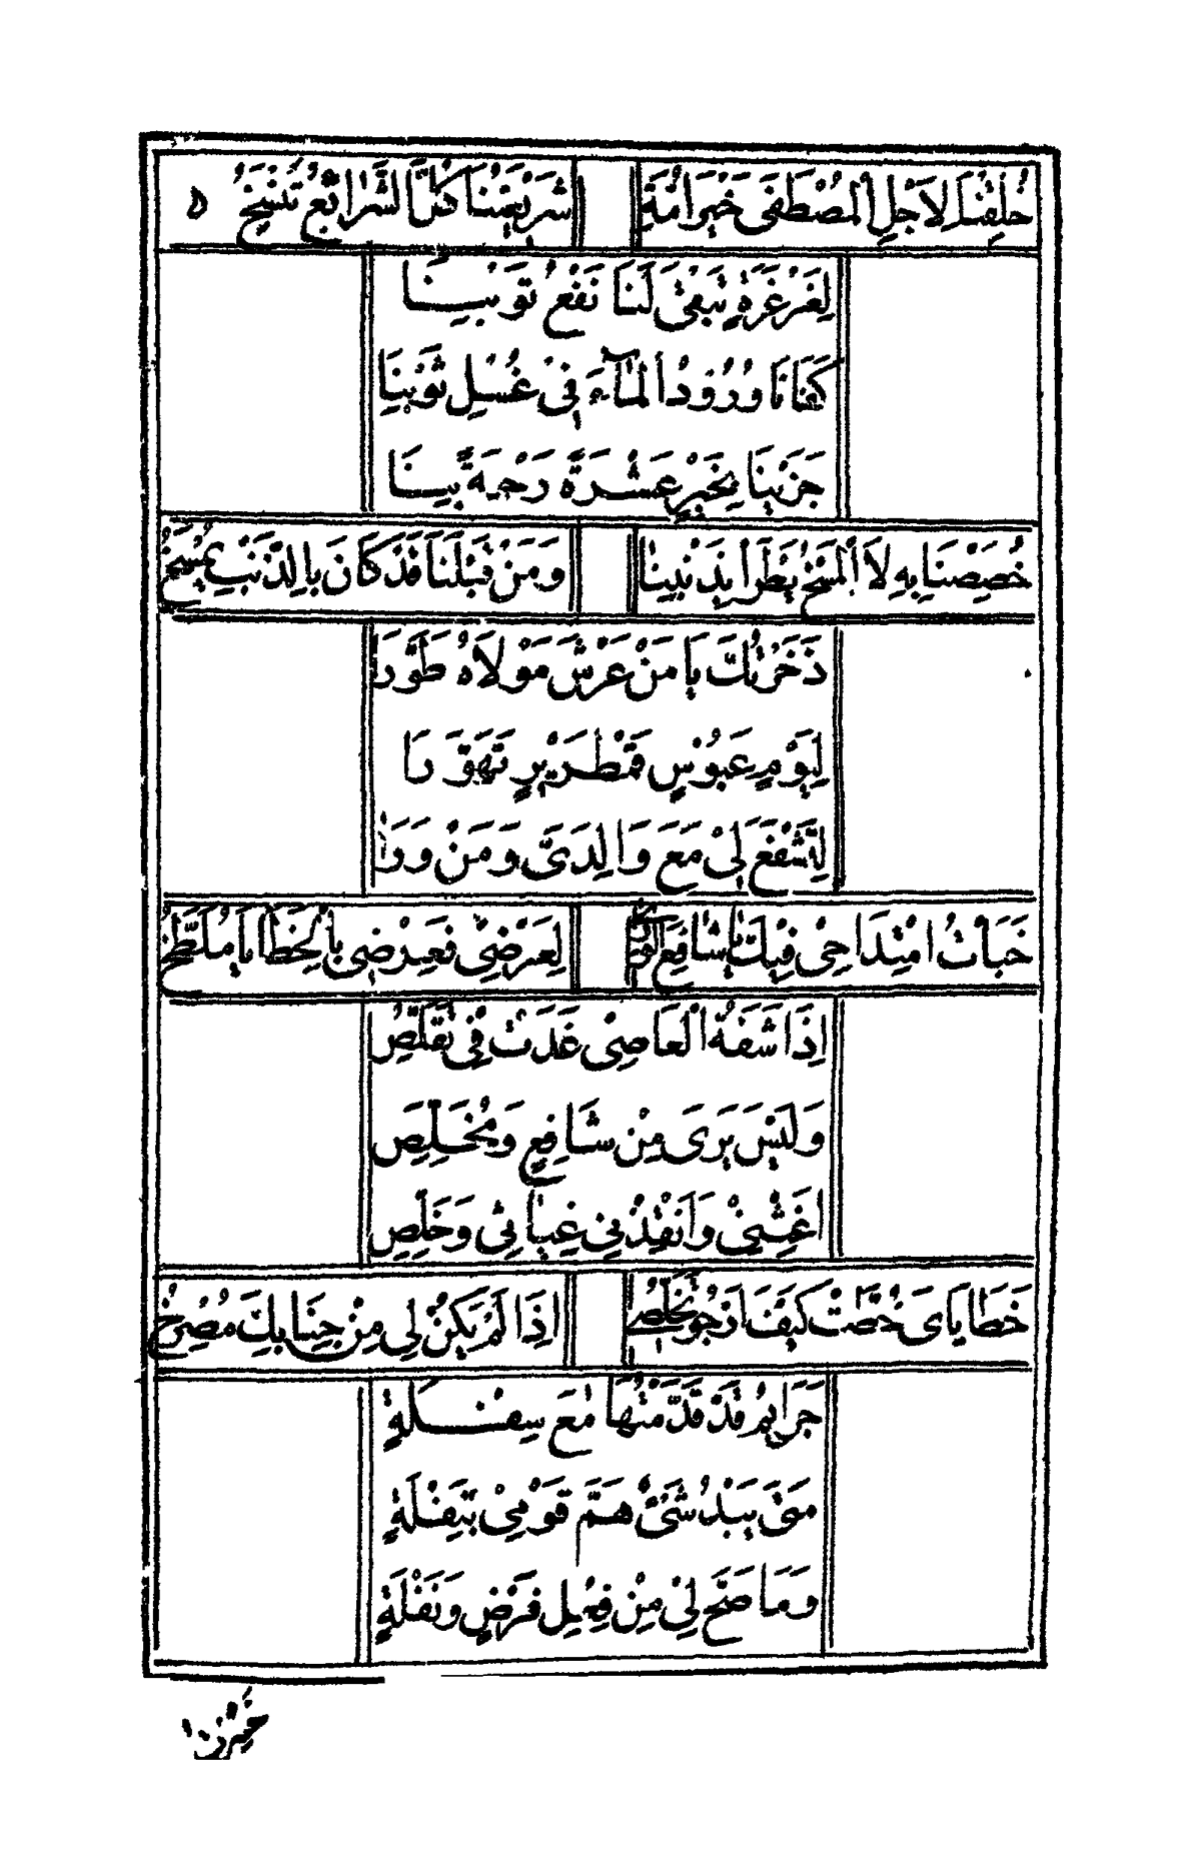 خُلِقْنَا لِاَجْلِ الْمُصْطَفَى خَيْرَ اُمَّةٍ شَرِيْعَتُنَا كُلَّ الشَّرَائِعِ تَنْسَخُ ٥
لِغَرْغَرَةٍ تَبْقٰى لَنَا نَفْعُ تَوْبِيْنَا
كَفَانَا وُرُوْدُ الْمَآءَ فِيْ غُسْلِ ثَوْبِنَا
جَزَيْنَا بِخَيْرٍ عَشْرَةً رَحْمَةً بِيْنَا
خُصِصْنَا بِهِ لَا الْمَسْخُ يَطْرَا بِذَنْبِنَا وَمَنْ قَبْلَنَا قَدْ كَانَ بِالذَّنْبِ يُمْسَخُ
ذَخَرْتُكَ يَا مَنْ عَرْشَ مَوْلَاهُ طَوَّرَا
لِيَوْمٍ عَبُوْسٍ قَمْطَرِيْرٍ تَهَوَّرَا
لِتَشْفَعَ لِيْ مَعَ وَالِدَيَّ وَمَنْ وَرَا
خَبَأْتُ امْتِدَاحِيْ فِيْكَ يَا شَافِعَ الْوَرٰى لِعَرْضِيْ فَعِرْضِي بِالْخَطَايَا مُلَطَّخُ
اِذَا شَفَةُ الْعَاصِيْ غَدَتْ فِيْ تَقَلُّصِ
وَلَيْسَ يَرَى مِنْ شَافِعٍ وَمُخَلِّصِ
اَغِثْنِيْ وَاَنْقِذْنِيْ غِيَاثِيْ وَخَلِّصِ
خَطَايَايَ خُصَّتْ كَيْفَ اَرْجُوْ تَخَلُّصِيْ اِذَا لَمْ يَكُنْ لِي مِنْ جِنَابِكَ مُصْرِخُ
جَرَايِمُ قَدْ قَدَّمْتُهَا مَعَ سِفْلَةٍ
مَتَى يَبْدُ شَيْءٌ هَمَّ قَوْمِيْ بِتَفْلَةٍ
وَمَا صَحَّ لِيْ مِنْ فِعْلِ فَرْضٍ وَنَفْلَةٍ